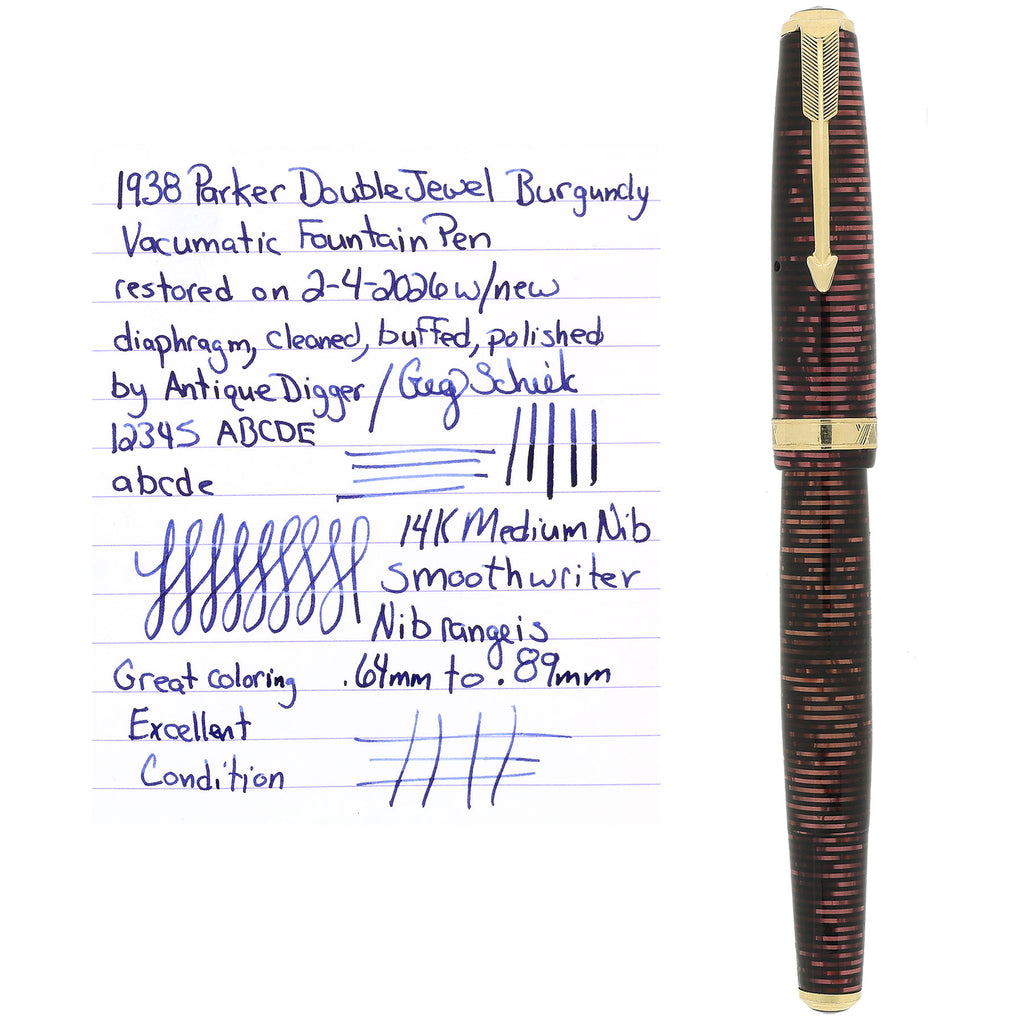 1938 Parker Double Jewel Burgundy
Vacumatic Fountain Pen
restored on 2-4-2026 w/new
diaphragm, cleaned, buffed, polished
by Antique Digger / Greg Schiek
12345 ABCDE
abcde
14K Medium Nib
Smooth writer
Nib range is
.64mm to .89mm
Great coloring
Excellent
Condition